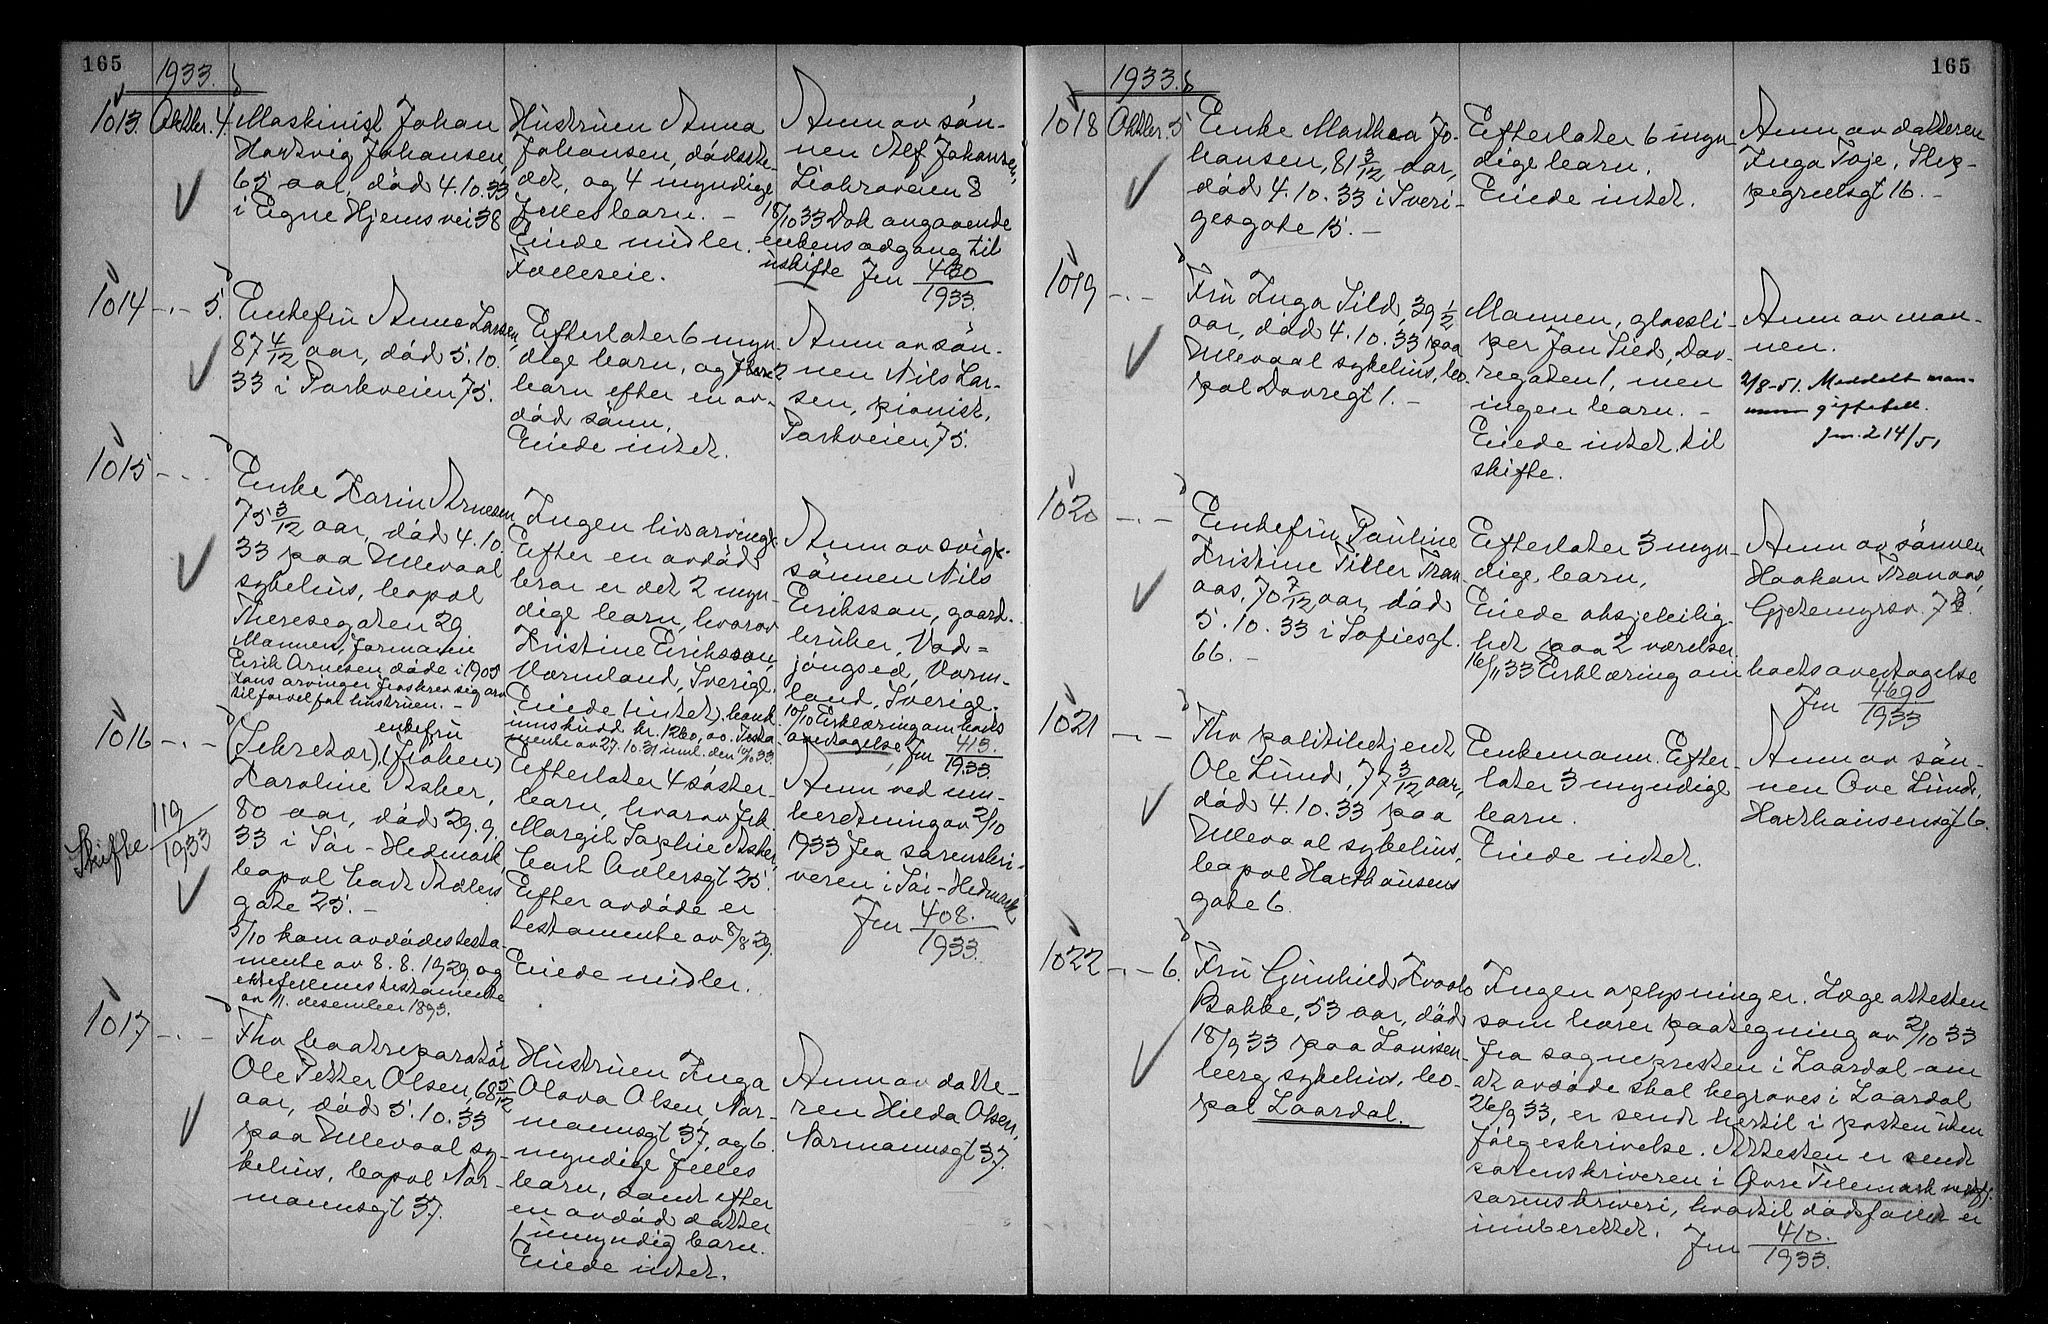 165
1933.
1013. Oktbr. 4. Maskinist Johan
Hartvig Johansen,
65 aar, död 4.10.33
i Egne Hjems vei 38
Hustruen Anna
Johansen, dödsste-
det, og 4 myndige
felles barn. –
Eiede midler.
Fælleseie.
Anm av sön-
nen Alf Johansen,
Liabraveien 8
18/10 33 Dok angaaende
enkens adgang til
uskifte Jnr 430/1933.
1014 -.- 5. Enkefru Anna Larsen,
87 4/12 aar, död 5.10.
33 i Parkveien 75.
Efterlater 6 myn-
dige barn, og 2
barn efter en av-
död sönn.
Eiede intet.
Anm av sön-
nen Nils Lar-
sen, pianist,
Parkveien 75.
1015 -.- Enke Karin Arnesen
75 3/12 aar, död 4.10.
33 paa Ullevaal
sykehus, bopal
Theresegaten 29
Mannen, formann
Erik Arnesen döde i 1905
hans arvinger fraskrev sig arv
til forvel for hustruen. –
Ingen livsarvinge.
Efter en avdöd
bror er det 2 myn-
dige barn, hvorav
Kristine Eriksson,
Værmland, Sverige.
Eiede intet.
innskudd kr. 1260,00. Testa-
mente av 27.10.31 innl. den 10/10 33.
Anm av svige-
sönnen Nils
Eriksson, gaard-
bruker, Vad-
jöngsed, Värm-
land, Sverige.
10/10 Erklæring om boets
overtagelse, Jnr 413./1933.
1016 -.- enkefru
(Sekretær), (fröken)
Karoline Asker,
80 aar, död 29.9.
33 i Sör-Hedmark,
bopal Carl Adlers
gate 25. –
5/10 kom avdödes testa-
mente av 8.8.1929 og
ektefellenes testamente
av 11. desember 1893.
Skifte 119/1933
Efterlater 4 söster-
barn, hvorav frk.
Margit Sophie Asker,
Carl Adlersgt 25.
Efter avdöde er
testamente av 8/8 29.
Eiede midler.
Anm ved inn-
beretning av 2/10
1933 fra sorenskri-
veren i Sör-Hedmark
Jnr 408./1933.
1017 -.- Fhv baatreparatör
Ole Petter Olsen, 68 5/12
aar, död 5.10.33
paa Ullevaal sy-
kehus, bopal Nor-
mannsgt 37.
Hustruen Inga
Olava Olsen, Nor-
mannsgt 37, og 6
myndige felles
barn, samt efter
en avdöd datter
1 umyndig barn.
Eiede intet.
Anm av datte-
ren Hilda Olsen,
Normannsgt 37.
165
1933.
1018 Oktbr. 5 Enke Marthea Jo-
hansen, 81 3/12 aar,
död 4.10.33 i Sveri-
gesgate 15. –
Efterlater 6 myn-
dige barn.
Eiede intet.
Anm av datteren
Inga Foje, Slep-
pegrellsgt 16. –
1019 -.- Fru Inga Sild, 39 1/2
aar, död 4.10.33 paa
Ullevaal sykehus, bo-
pal Dovregt 1. –
Mannen, glassli-
per Jan Sild, Dov-
regaten 1, men
ingen barn. –
Eiede intet til
skifte.
Anm av man-
nen.
2/8-51. Meddelt man-
nen giftetill.
Jnr. 214/51
1020 -.- Enkefru Pauline
Kristine Tiller Tran-
aas, 70 7/12 aar, död
5.10.33 i Sofiesgt.
66. –
Efterlater 3 myn-
dige barn,
Eiede aksjeleilig-
het paa 2 værelser.
16/11 33 Erklæring om boets overtagelse
Jnr 469/1933
Anm av sönnen
Haakon Tranaas,
Gjetemyrsv. 7
1021 -.- Fhv politibetjent
Ole Lund, 77 3/12 aar,
död 4.10.33 paa
Ullevaal sykehus,
bopal Haxthausens
gate 6.
Enkemann. Efter-
later 3 myndige
barn.
Eiede intet.
Anm av sön-
nen Ove Lund,
Haxthausensgt 6.
1022 -.- 6. Fru Gunhild Kvaale
Bakke, 53 aar, död
18/9 33 paa Lovisen-
berg sykehus, bo-
pal Laardal.
Ingen oplysninger. Læge attesten
som bærer paategning av 2/10 33
fra sognepresten i Laardal om
at avdöde skal begraves i Laardal
26/9 33, er sendt hertil i posten uten
fölgeskrivelse. Attesten er sendt
sorenskriveren i Øvre Telemark vestfj.
sorenskriveri, hvortil dödsfallet er
innberettet. Jnr 410./1933.